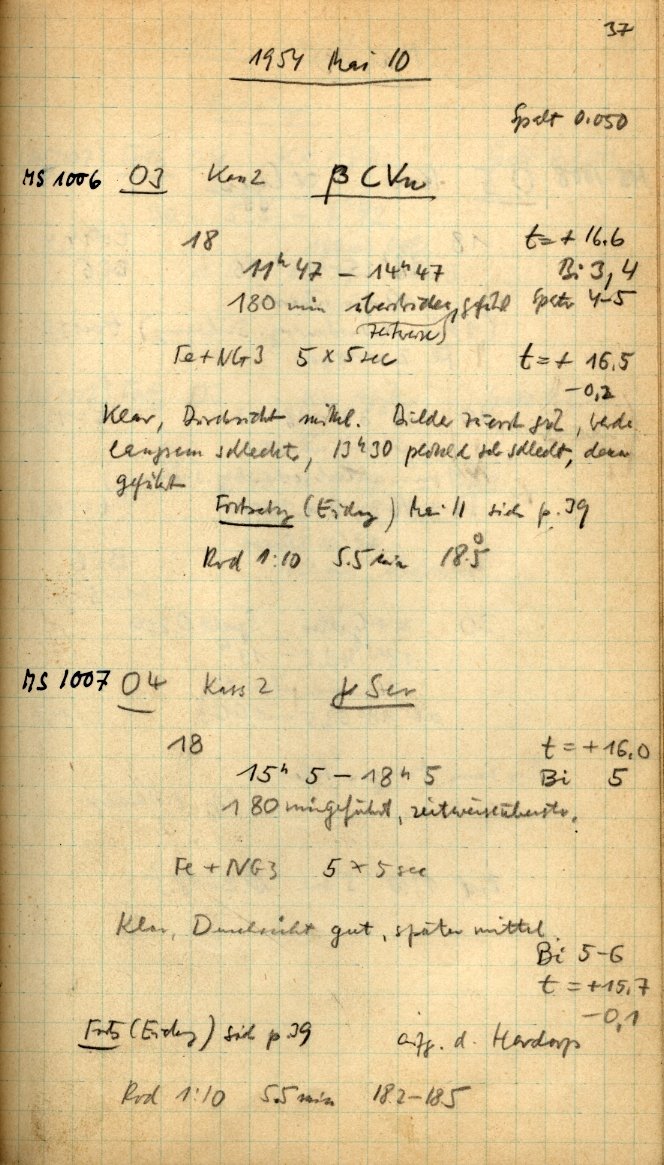 37
1954 Mai 10
Spalt 0.050
MS 1006 03 Kass 2 β CVn
18 t = + 16.6
11ʰ 47 – 14ʰ 47 Bi 3, 4
180 min überstrichen, geführt später 4–5
zeitweise
Fe + NG3 5 × 5 sec t = + 16.5
–0,2
Klar, Durchsicht mittel. Bilder zuerst gut, werde
langsam schlechter, 13ʰ30 plötzl sehr schlecht, dann
geführt
Fortsetzg (Eichg) Mai 11 sieh p. 39
Rod 1:10 5.5 min 18.5°
MS 1007 04 Kass 2 μ Ser
18 t = +16,0
15ʰ 5 – 18ʰ 5 Bi 5
180 min geführt, zeitweise überstr.
Fe + NG3 5 × 5 sec
Klar, Durchsicht gut, später mittel.
Bi 5–6
t = +15,7
–0,1
Forts (Eichg) sieh p 39 aufg. d. Hardorp
Rod 1:10 5.5 min 18.2–18.5